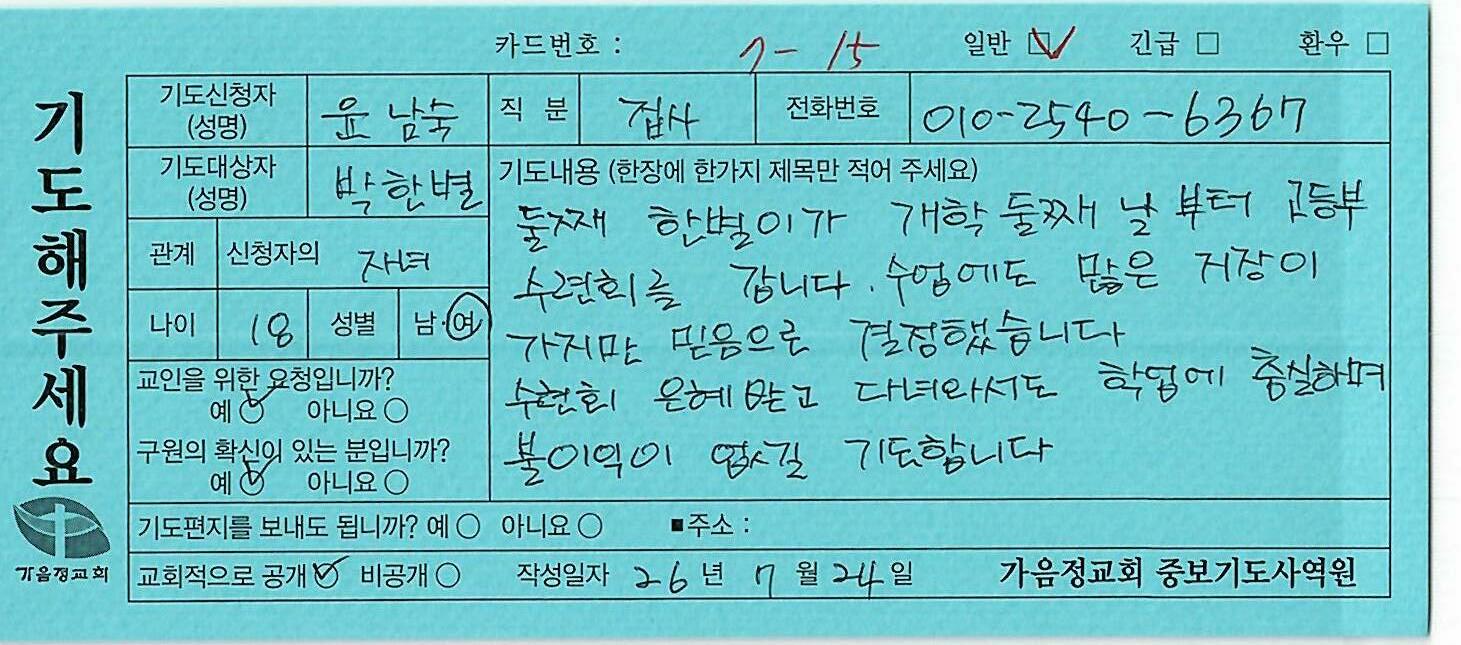 카드번호 : 7-15 일반 긴급 환우
기도해주세요
가음정교회
기도신청자 (성명) 윤남숙 직 분 집사 전화번호 010-2540-6367
기도대상자 (성명) 박한별
관계 신청자의 자녀
나이 18 성별 남·여
교인을 위한 요청입니까?
예 아니요
구원의 확신이 있는 분입니까?
예 아니요
기도내용 (한장에 한가지 제목만 적어 주세요)
둘째 한별이가 개학 둘째 날 부터 고등부
수련회를 갑니다. 수업에도 많은 지장이
가지만 믿음으로 결정했습니다
수련회 은혜 받고 다녀와서도 학업에 충실하며
불이익이 없길 기도합니다
기도편지를 보내도 됩니까? 예 아니요 ■주소 :
교회적으로 공개 비공개 작성일자 26년 7월 24일 가음정교회 중보기도사역원